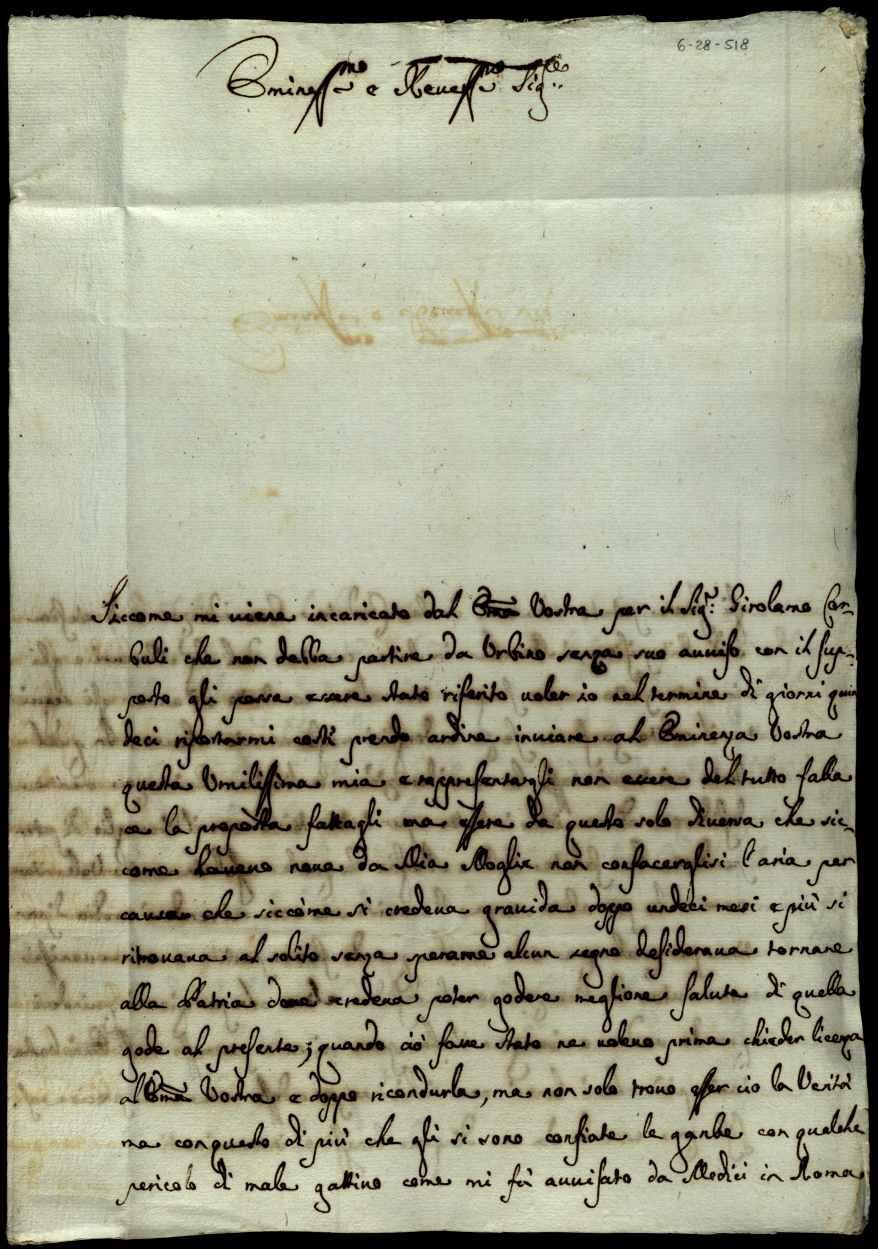 6-28-518
Eminess.mo e Reveress.mo Sig.re
Siccome mi viene incaricato dal Em.a Vostra per il Sig.r Girolamo Cor-
buli che non debba partire da Urbino senza suo avviso con il sup-
posto gli possa essere stato riferito voler io nel termine di giorni quin
deci riportarmi costi prendo ardire inviare al Eminenza Vostra
questa Umilissima mia e rappresentargli non essere del tutto falla
ce la proposta fattagli ma essere da questo solo diversa che sic-
come havevo nova da Mia Moglie non confacerglisi l'aria per
causa che siccome si credeva gravida doppo undeci mesi e più si
ritrovava al solito senza alcun segno desiderava tornare
alla Patria dove credeva poter godere megliore salute di quella
gode al presente; quando ciò fosse stato ne volevo prima chieder licenza
al Em.a Vostra e doppo ricondurla, ma non solo trovo esser cio la Verità
ma con questo di più che gli si sono confiate le gambe con qualche
pericolo di male gattivo come mi fù avvisato da Medici in Roma